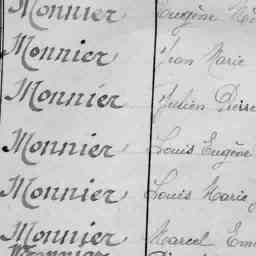 Monnier Eugène
Monnier Jean Marie
Monnier Julien Pierre
Monnier Louis Eugène
Monnier Louis Marie
Monnier Marcel
Monnier